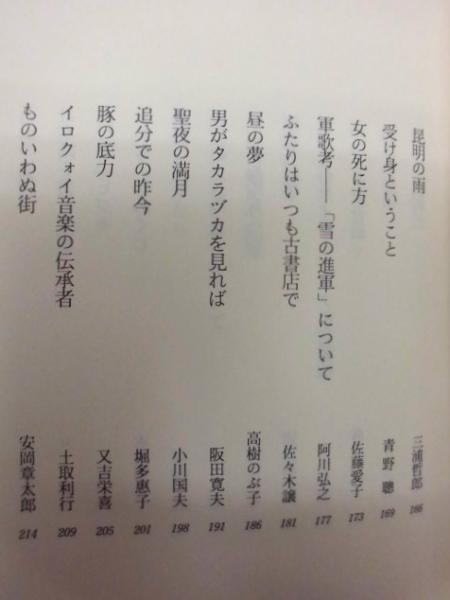 昆明の雨 三浦哲郎 166
受け身ということ 青野聰 169
女の死に方 佐藤愛子 173
軍歌考――「雪の進軍」について 阿川弘之 177
ふたりはいつも古書店で 佐々木譲 181
昼の夢 高樹のぶ子 186
男がタカラヅカを見れば 阪田寛夫 191
聖夜の満月 小川国夫 198
追分での昨今 堀多惠子 201
豚の底力 又吉栄喜 205
イロクォイ音楽の伝承者 土取利行 209
ものいわぬ街 安岡章太郎 214